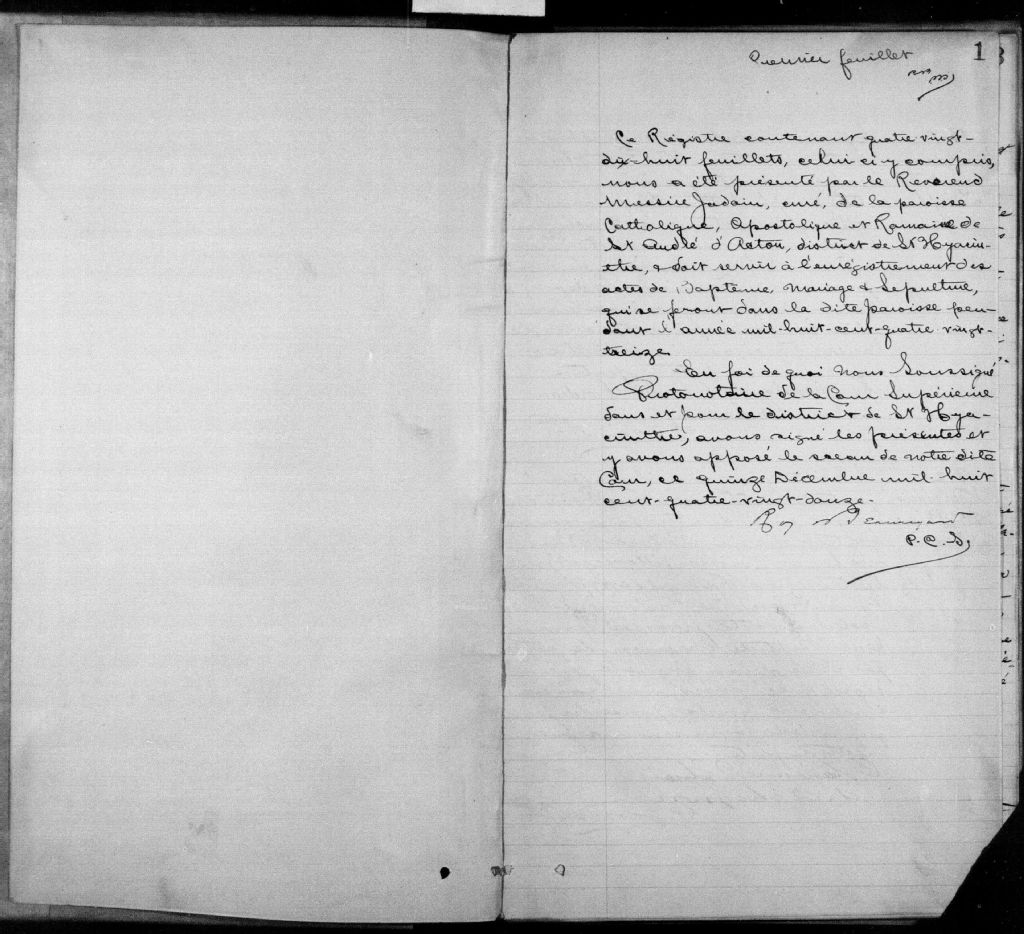 Premier feuillet 1
Ce Régistre contenant quatre vingt-
dix-huit feuillets, celui ci y compris,
nous a été présenté par le Reverend
Messire Jodoin, curé, de la paroisse
Catholique, Apostolique et Romaine de
St André d'Acton, district de St Hyacin-
the, & doit servir à l'enrégistrement des
actes de Baptême, Mariage & Sepulture,
qui se feront dans la dite paroisse pen-
dant l'année mil-huit-cent-quatre vingt-
treize.
En foi de quoi Nous Soussigné
Protonotaire de la Cour Supérieure
dans et pour le district de St Hya-
cinthe, avons signé les présentes et
y avons apposé le sceau de notre dite
Cour, ce quinze Décembre mil-huit
cent-quatre-vingt-douze.
P.C.S.